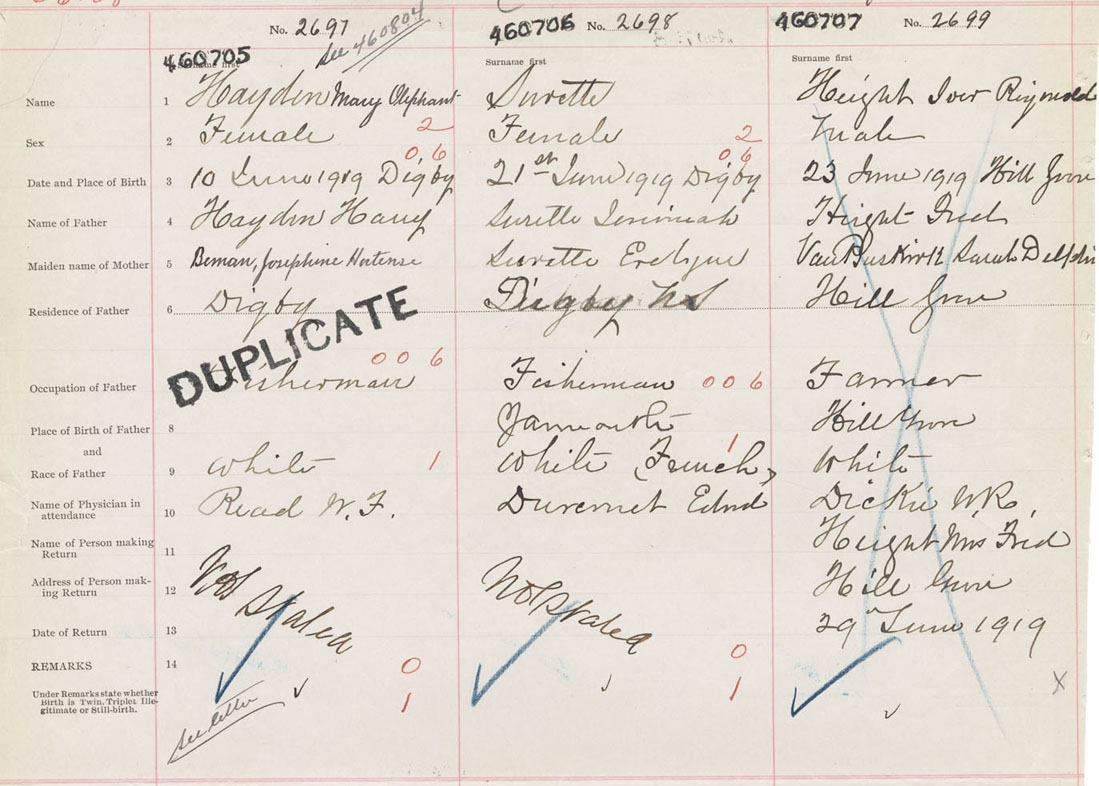 No. 2697
see 460804
460706
No. 2698
460707
No. 2699
460705
Surname first
Surname first
Surname first
Name 1 Hayden Mary Oliphant Surette Height Iver Reginald
Sex 2 Female 2 Female 2 Male
06 06
Date and Place of Birth 3 10 June 1919 Digby 21st June 1919 Digby 23 June 1919 Hill Grove
Name of Father 4 Hayden Harry Surette Jeremiah Height Fred
Maiden name of Mother 5 Beman, Josephine Hortense Surette Evelyne VanBuskirk Sarah
Residence of Father 6 Digby Digby NS Hill Grove
DUPLICATE
006
Occupation of Father Fisherman Fisherman 006 Farmer
Place of Birth of Father 8 Yarmouth Hill Grove
and
Race of Father 9 White 1 White (French) 1 White
Name of Physician in attendance 10 Read W. F. Duvernet Edwd Dickie W R,
Name of Person making Return 11 Height Mrs Fred
Address of Person making Return 12 Not Stated Not Stated Hill Grove
Date of Return 13 29 June 1919
REMARKS 14 0 0
Under Remarks state whether Birth is Twin, Triplet, Illegitimate or Still-birth.
1 1 X
see letter